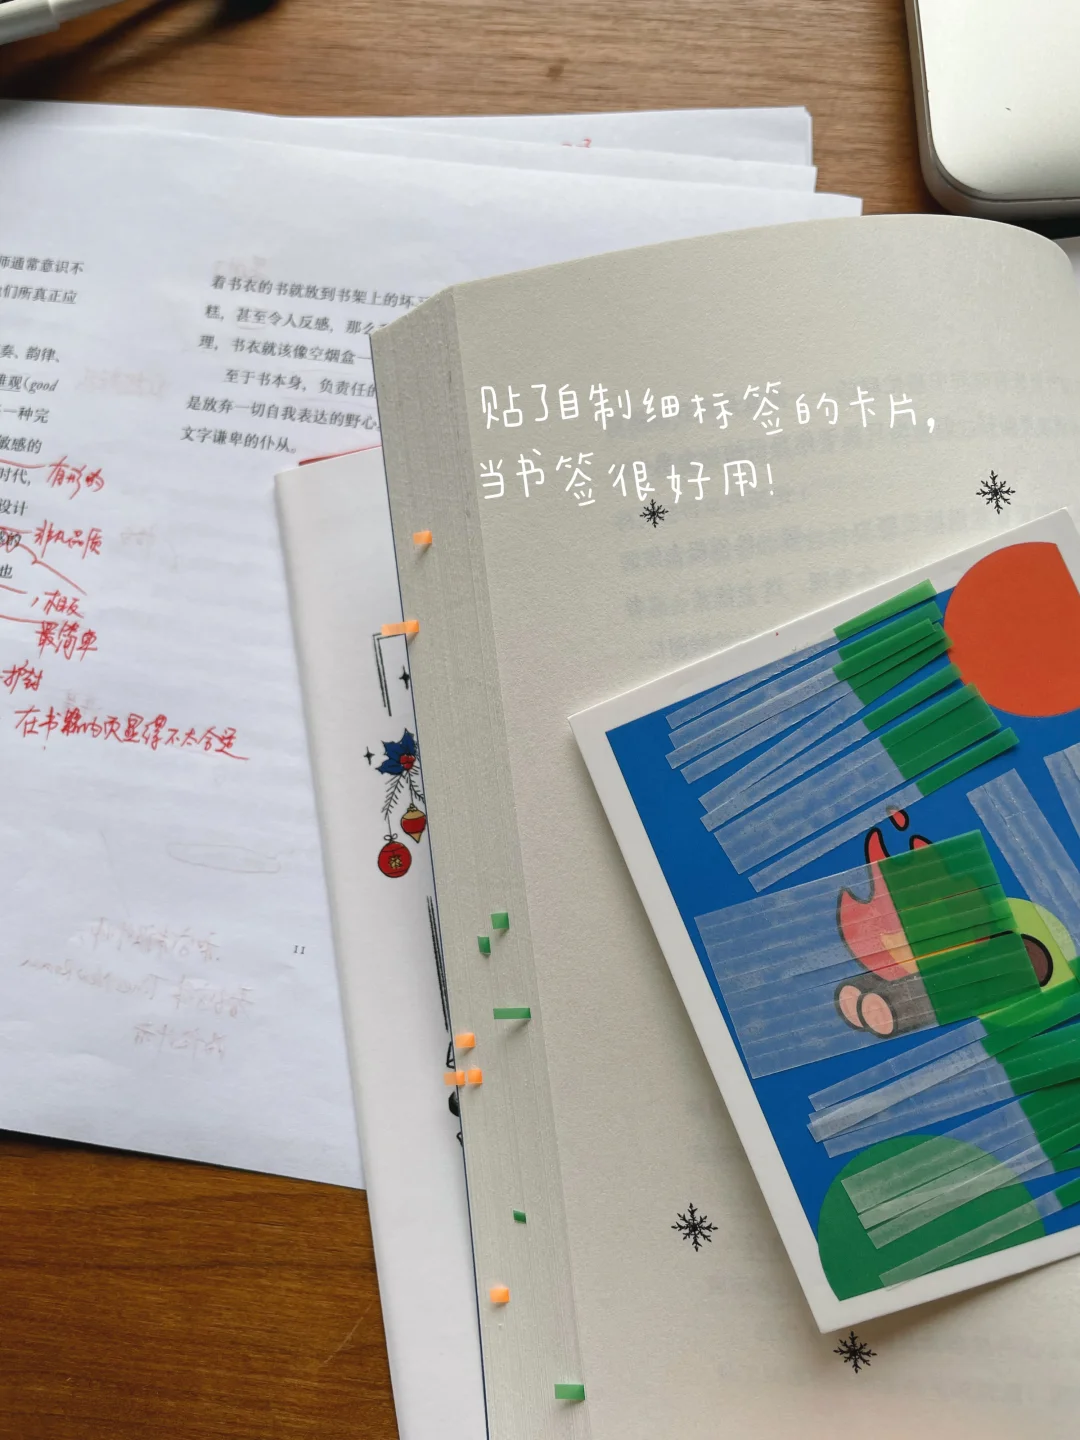 师通常意识不
们所真正应
奏、韵律、
雅观(good
一种完
敏感的
时代,
设计
也
有形的
非凡品质
,相反
最简单
护封
在书籍的页显得不太合适
着书衣的书就放到书架上的坏习
糕，甚至令人反感，那么
理，书衣就该像空烟盒一
至于书本身，负责任的
是放弃一切自我表达的野心
文字谦卑的仆从。
11
贴了自制细标签的卡片，
当书签很好用！